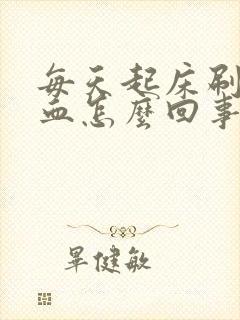 每天起床刷
血怎麼回事
畢健敏